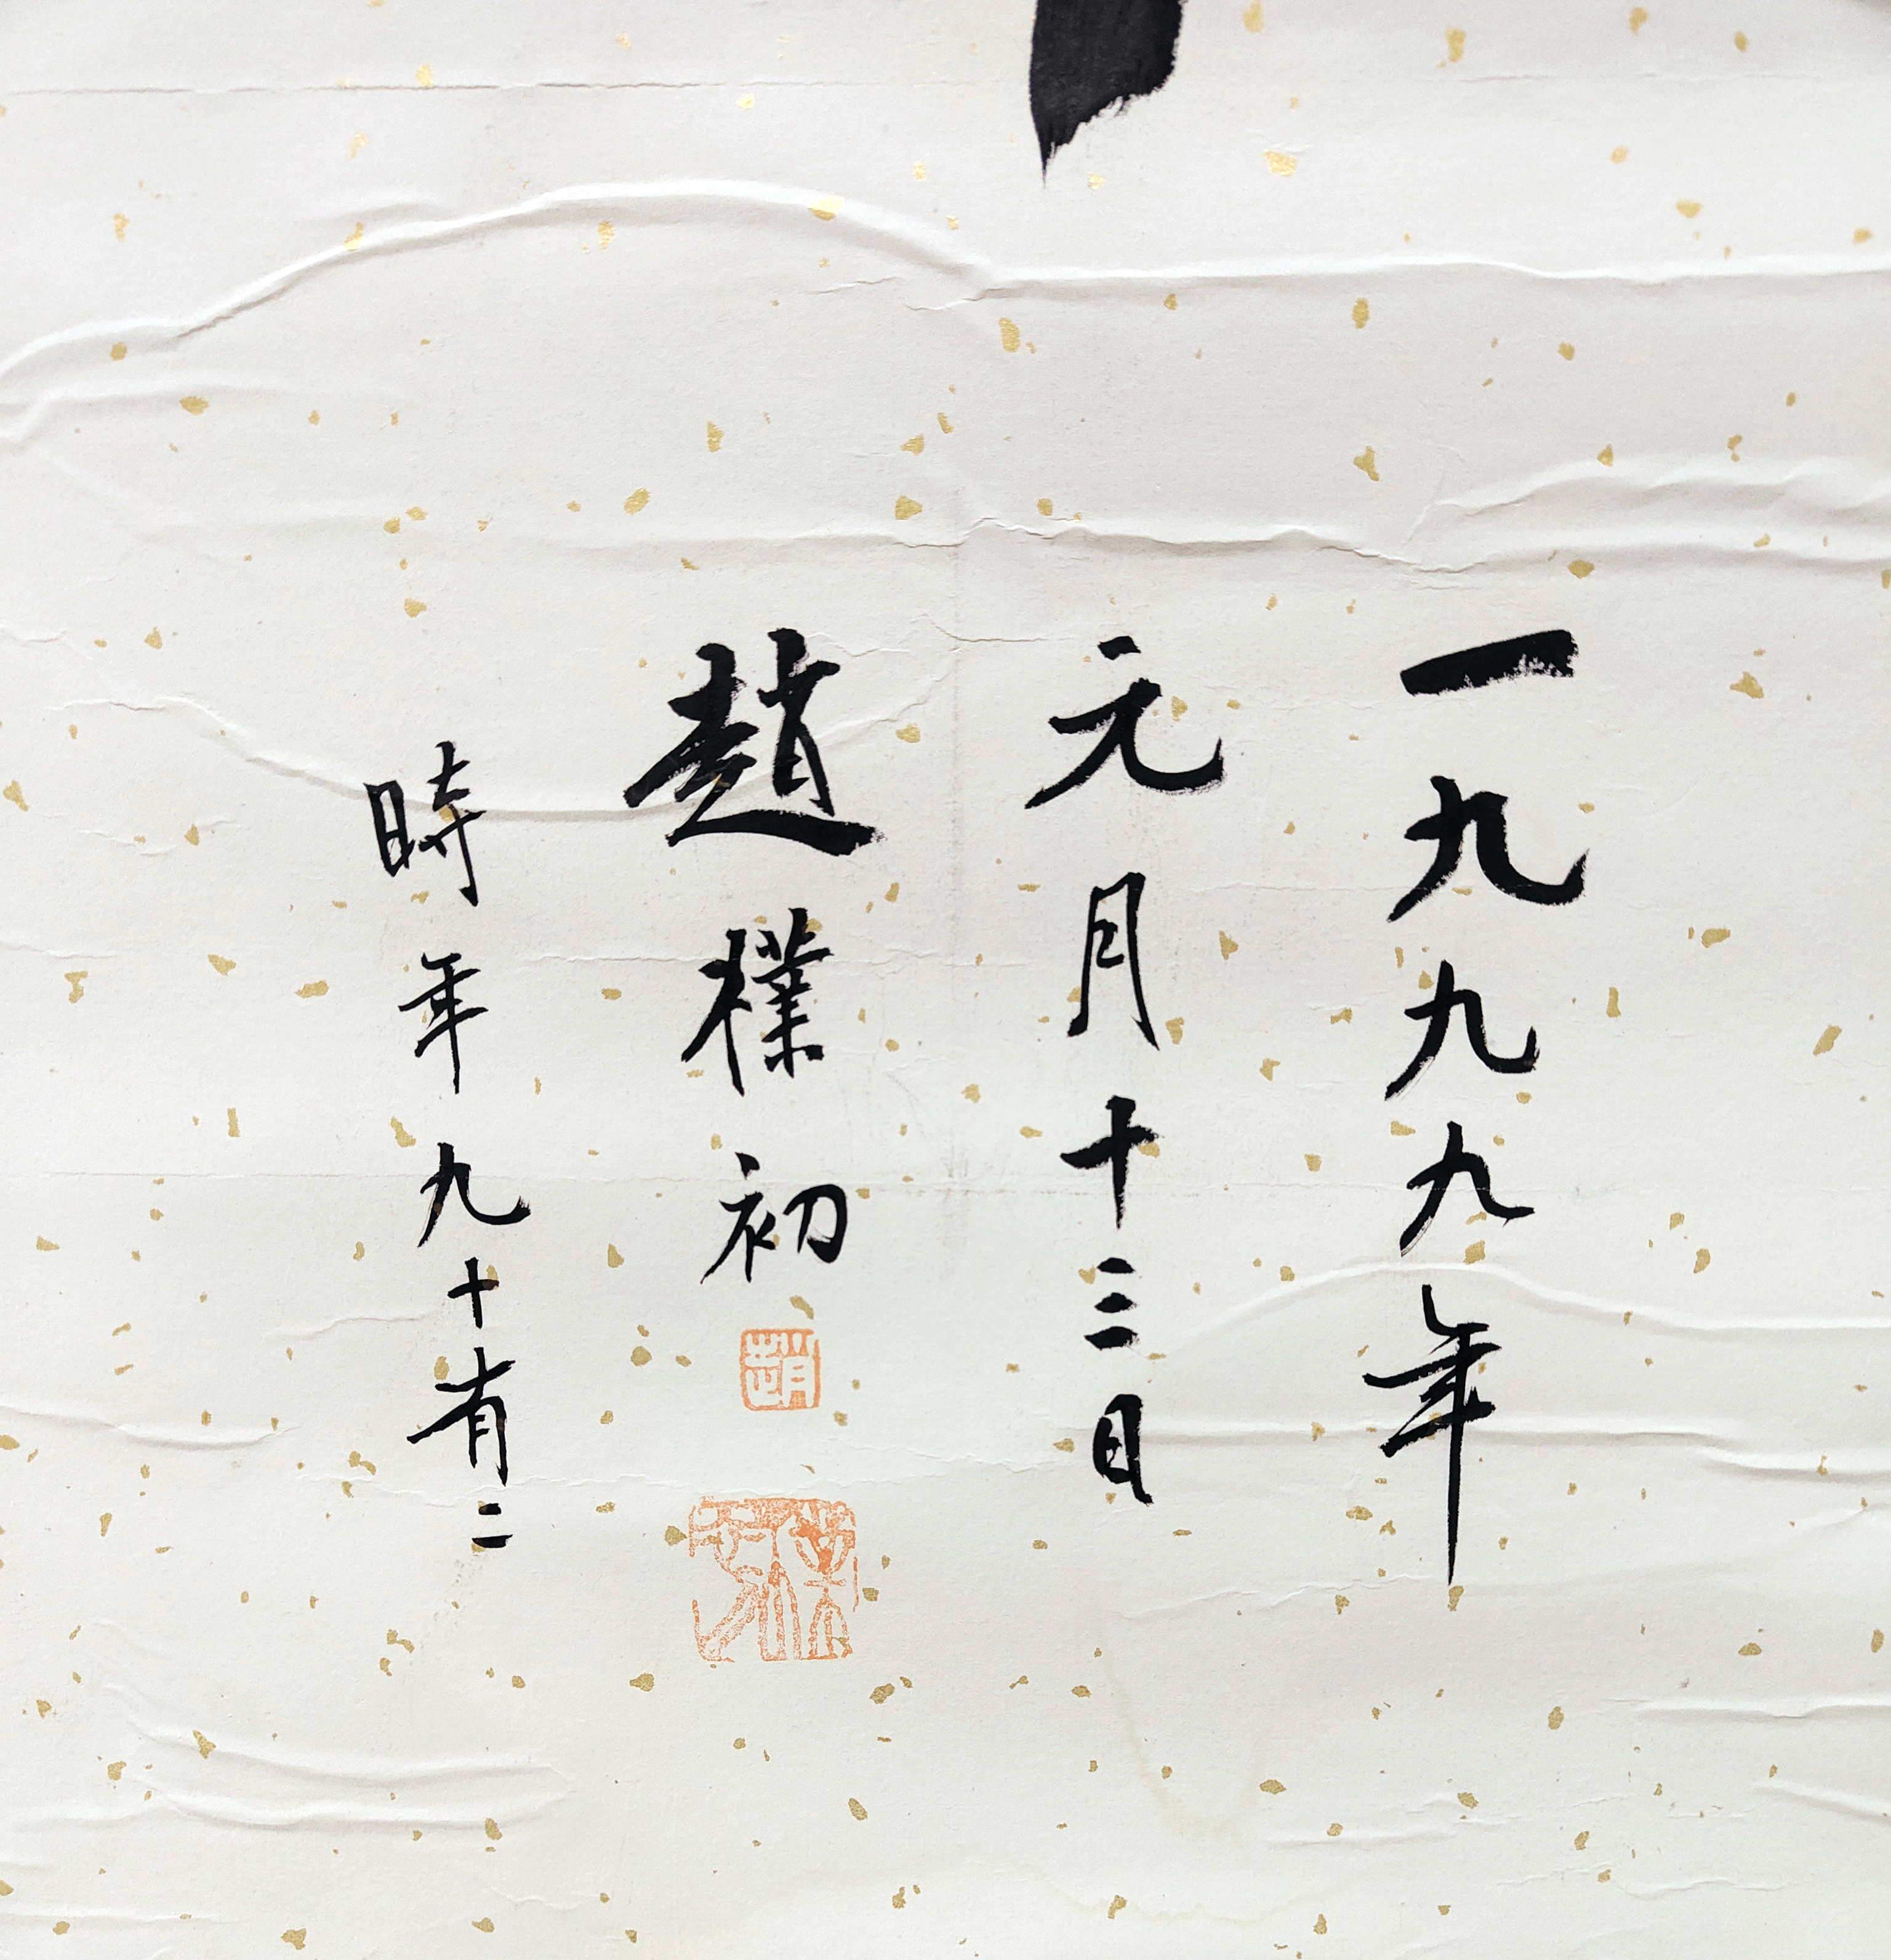 一九九九年
元月十三日
趙樸初
時年九十有二
趙
樸初